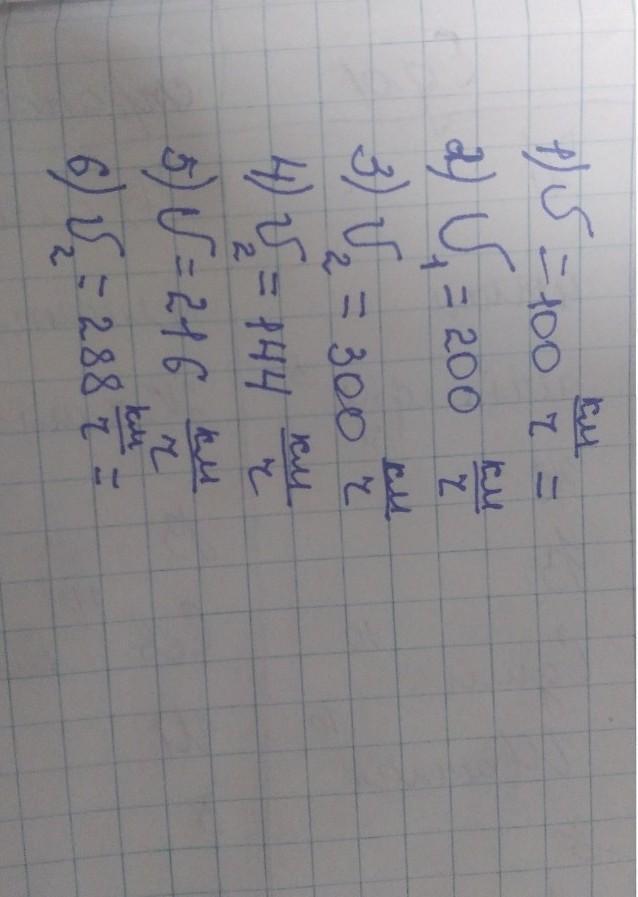 1) υ = 100 км/ч =
2) υ₁ = 200 км/ч
3) υ₂ = 300 км/ч
4) υ₂ = 144 км/ч
5) υ = 216 км/ч
6) υ₂ = 288 км/ч =